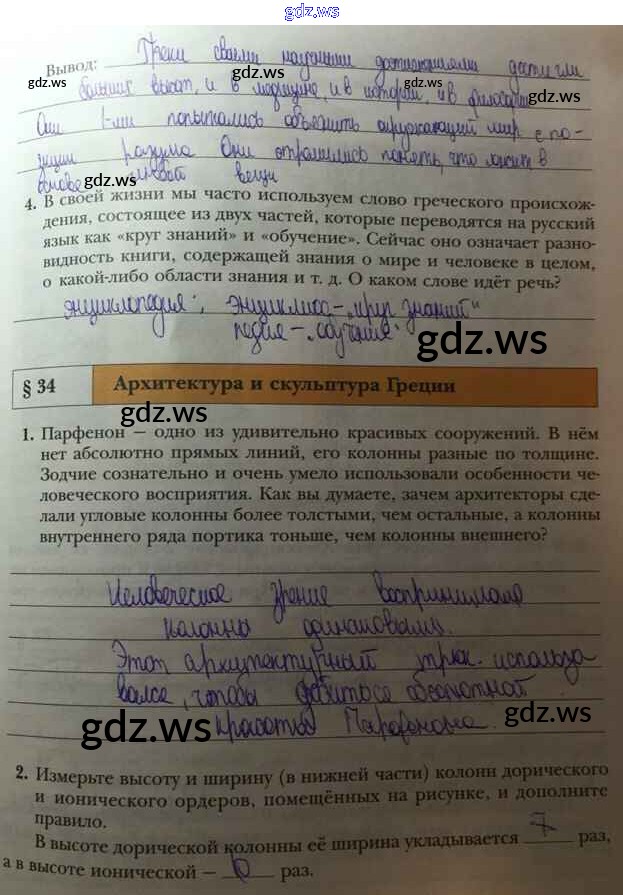 gdz.ws
Вывод: Греки своими научными достижениями достигли
gdz.ws gdz.ws
больших высот, и в медицине, и в истории, и в философии
gdz.ws
Они 1-ми попытались объяснить окружающий мир с по-
зиции разума Они стремились понять, что лежит в
основе любой вещи
gdz.ws
4. В своей жизни мы часто используем слово греческого происхож-
дения, состоящее из двух частей, которые переводятся на русский
язык как «круг знаний» и «обучение». Сейчас оно означает разно-
видность книги, содержащей знания о мире и человеке в целом,
о какой-либо области знания и т. д. О каком слове идёт речь?
энциклопедия; энциклос-„круг знаний"
педия-„обучение"
gdz.ws
§ 34 Архитектура и скульптура Греции
gdz.ws
1. Парфенон — одно из удивительно красивых сооружений. В нём
нет абсолютно прямых линий, его колонны разные по толщине.
Зодчие сознательно и очень умело использовали особенности че-
ловеческого восприятия. Как вы думаете, зачем архитекторы сде-
лали угловые колонны более толстыми, чем остальные, а колонны
внутреннего ряда портика тоньше, чем колонны внешнего?
Человеческое зрение воспринимало
колонны одинаковыми.
Этот архитектурный трюк использо
вался, чтобы добиться абсолютной
красоты Парфенона.
gdz.ws gdz.ws
2. Измерьте высоту и ширину (в нижней части) колонн дорического
и ионического ордеров, помещённых на рисунке, и дополните
правило.
В высоте дорической колонны её ширина укладывается 7 раз,
а в высоте ионической — раз.
gdz.ws